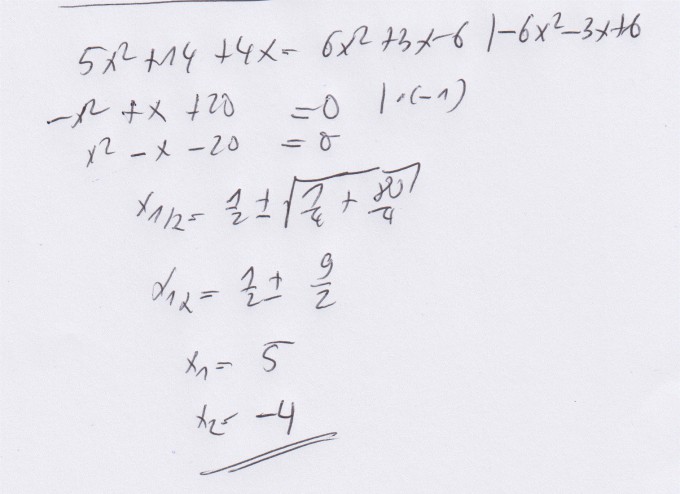 5x² + 14 + 4x = 6x² + 3x - 6 | -6x² - 3x + 6
-x² + x + 20 = 0 | ·(-1)
x² - x - 20 = 0
x1/2 = 1/2 ± √(1/4 + 80/4)
x1,2 = 1/2 ± 9/2
x1 = 5
x2 = -4